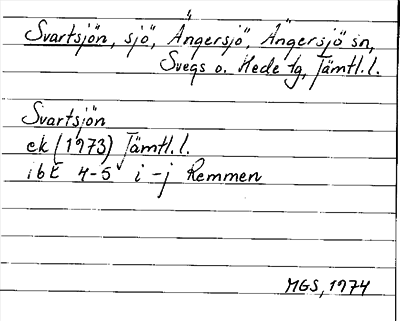 Svartsjön, sjö, Ängersjö, Ängersjö sn,
Svegs o. Hede tg, Jämtl.l.
Svartsjön
ek (1973) Jämtl.l.
ibE 4-5 i-j Remmen
MGS, 1974